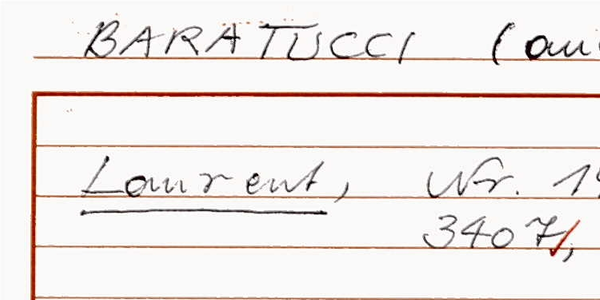 BARATUCCI (aui
Laurent, Nr. 19
3407,